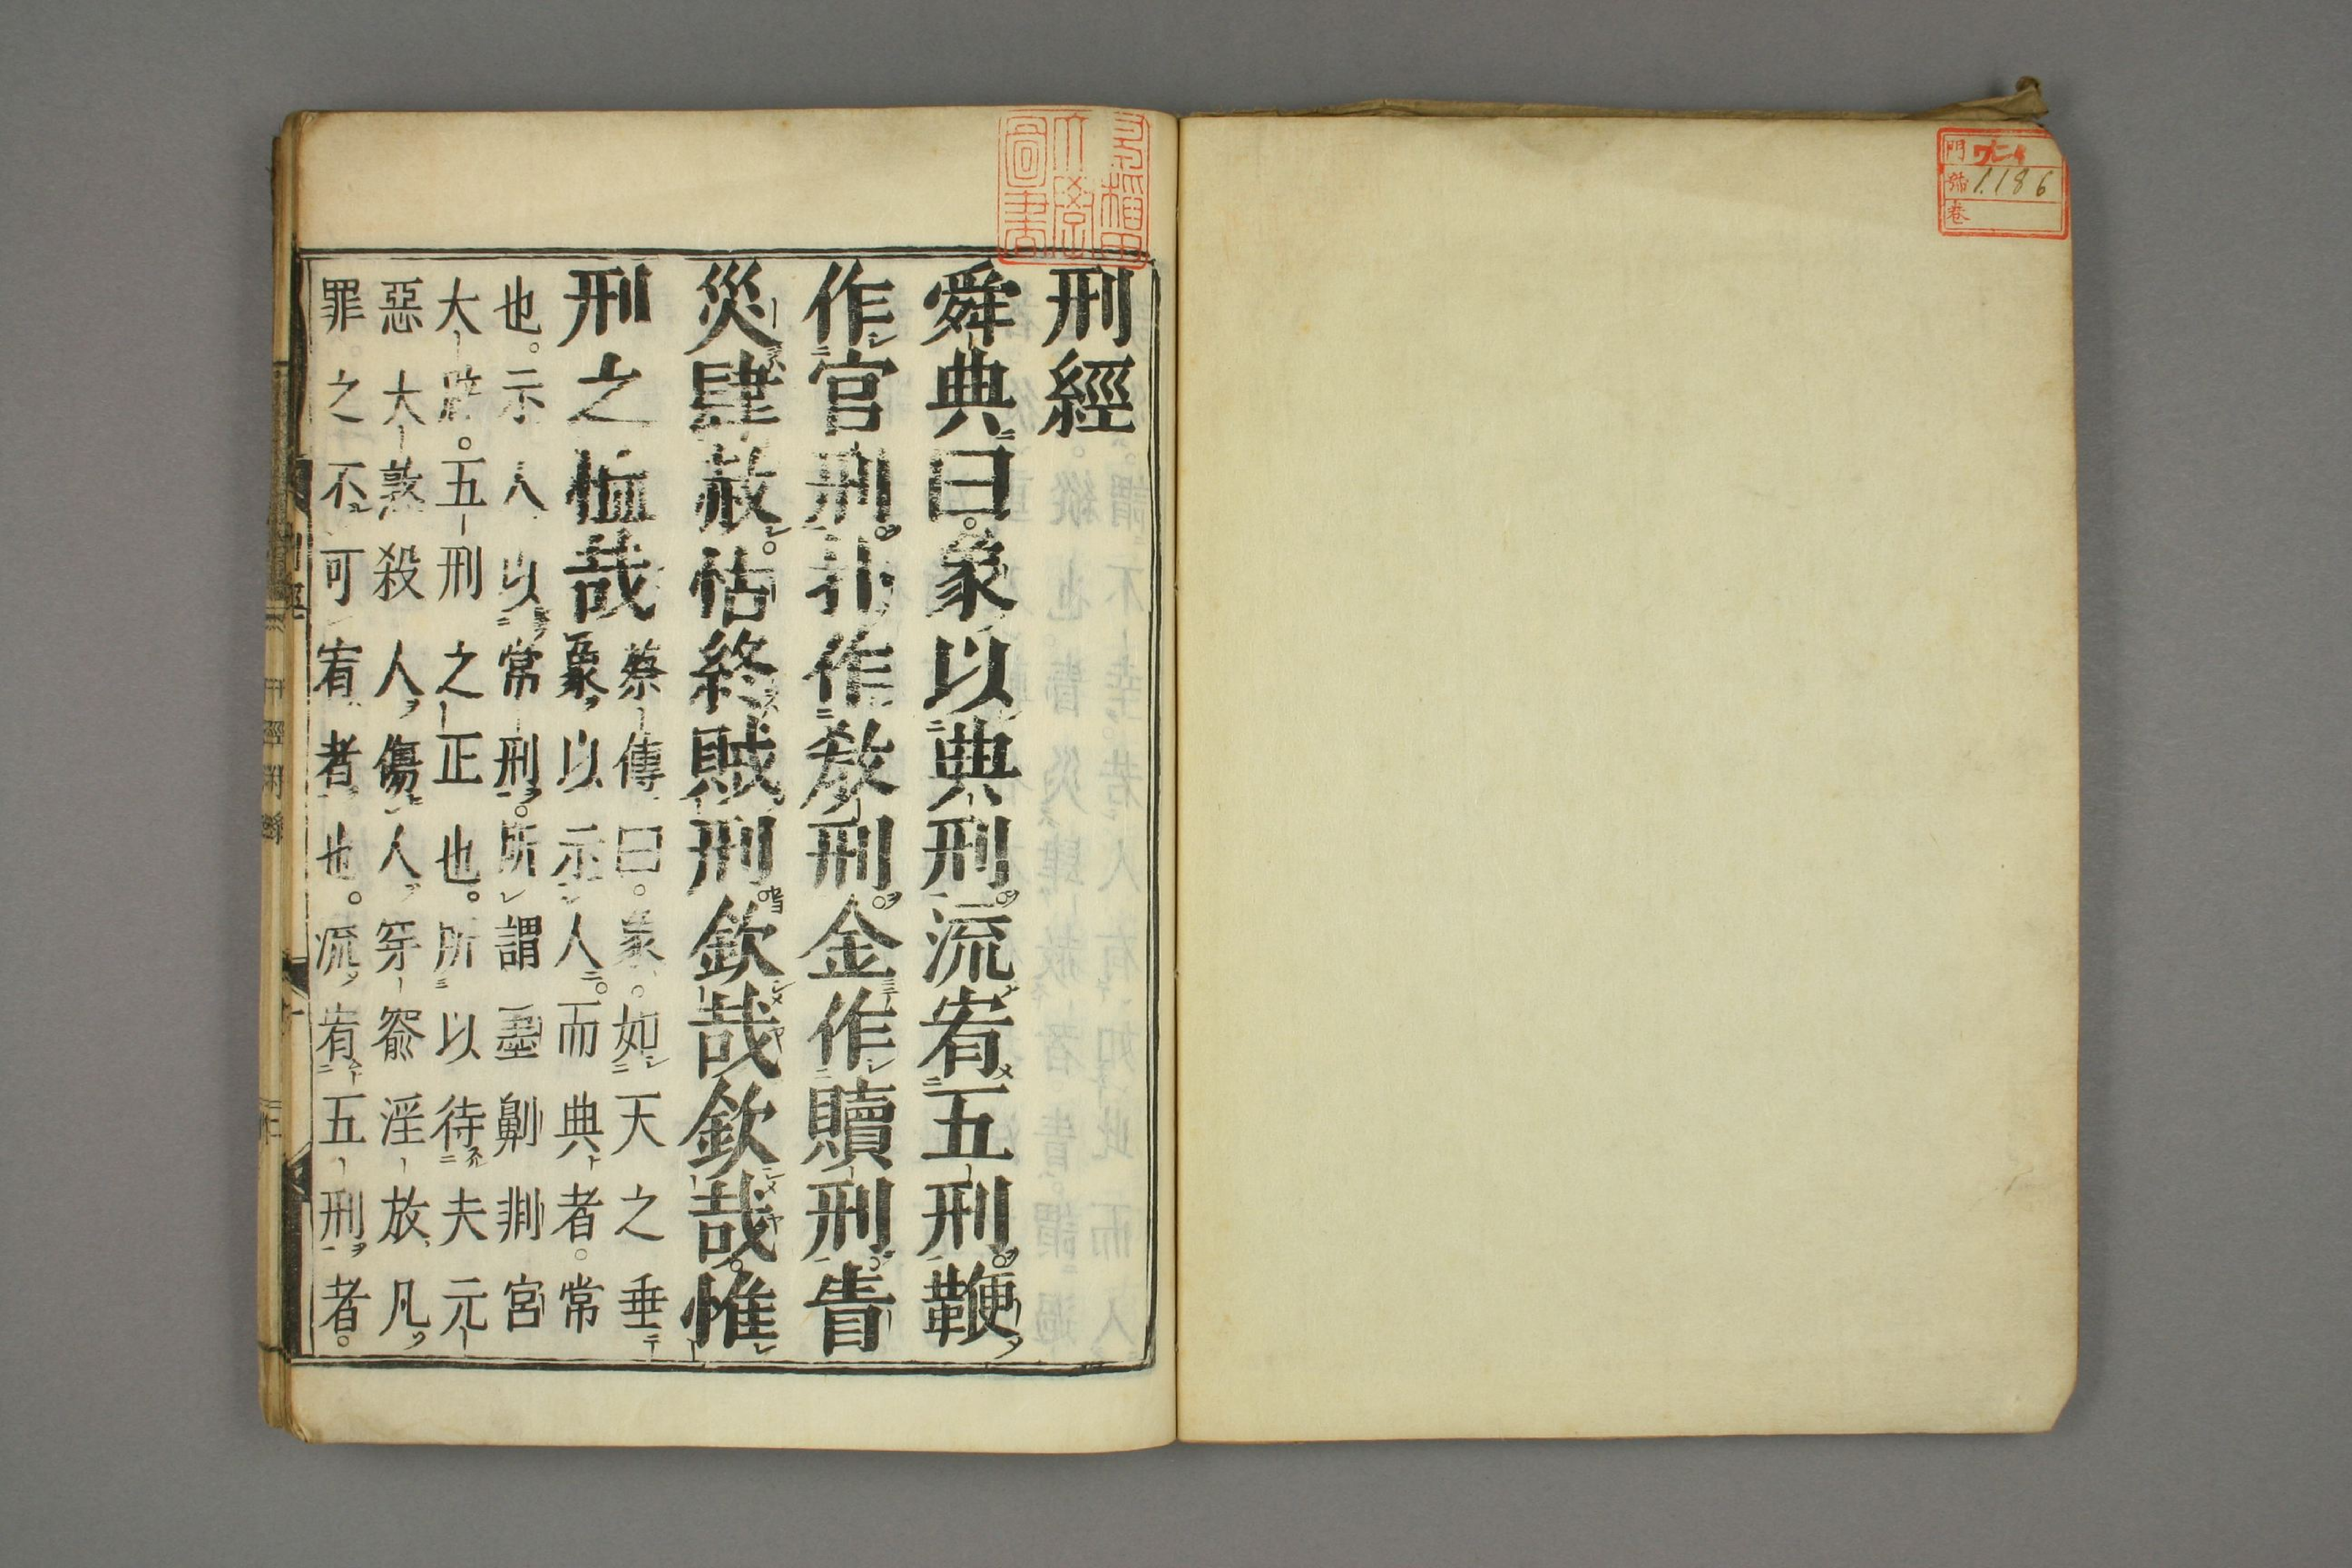 門
號 1186
卷
早稲田
大學
圖書
刑經
舜典曰。象以典刑。流宥五刑。鞭
作官刑。扑作教刑。金作贖刑。眚
災肆赦。怙終賊刑。欽哉欽哉。惟
刑之恤哉
蔡傳曰。象。如天之垂
象以示人。而典者。常
也。示人以常刑。所謂墨劓剕宮
大辟。五刑之正也。所以待夫元
惡大憝殺人傷人穿窬淫放凡
罪之不可宥者也。流宥五刑者。
刑經